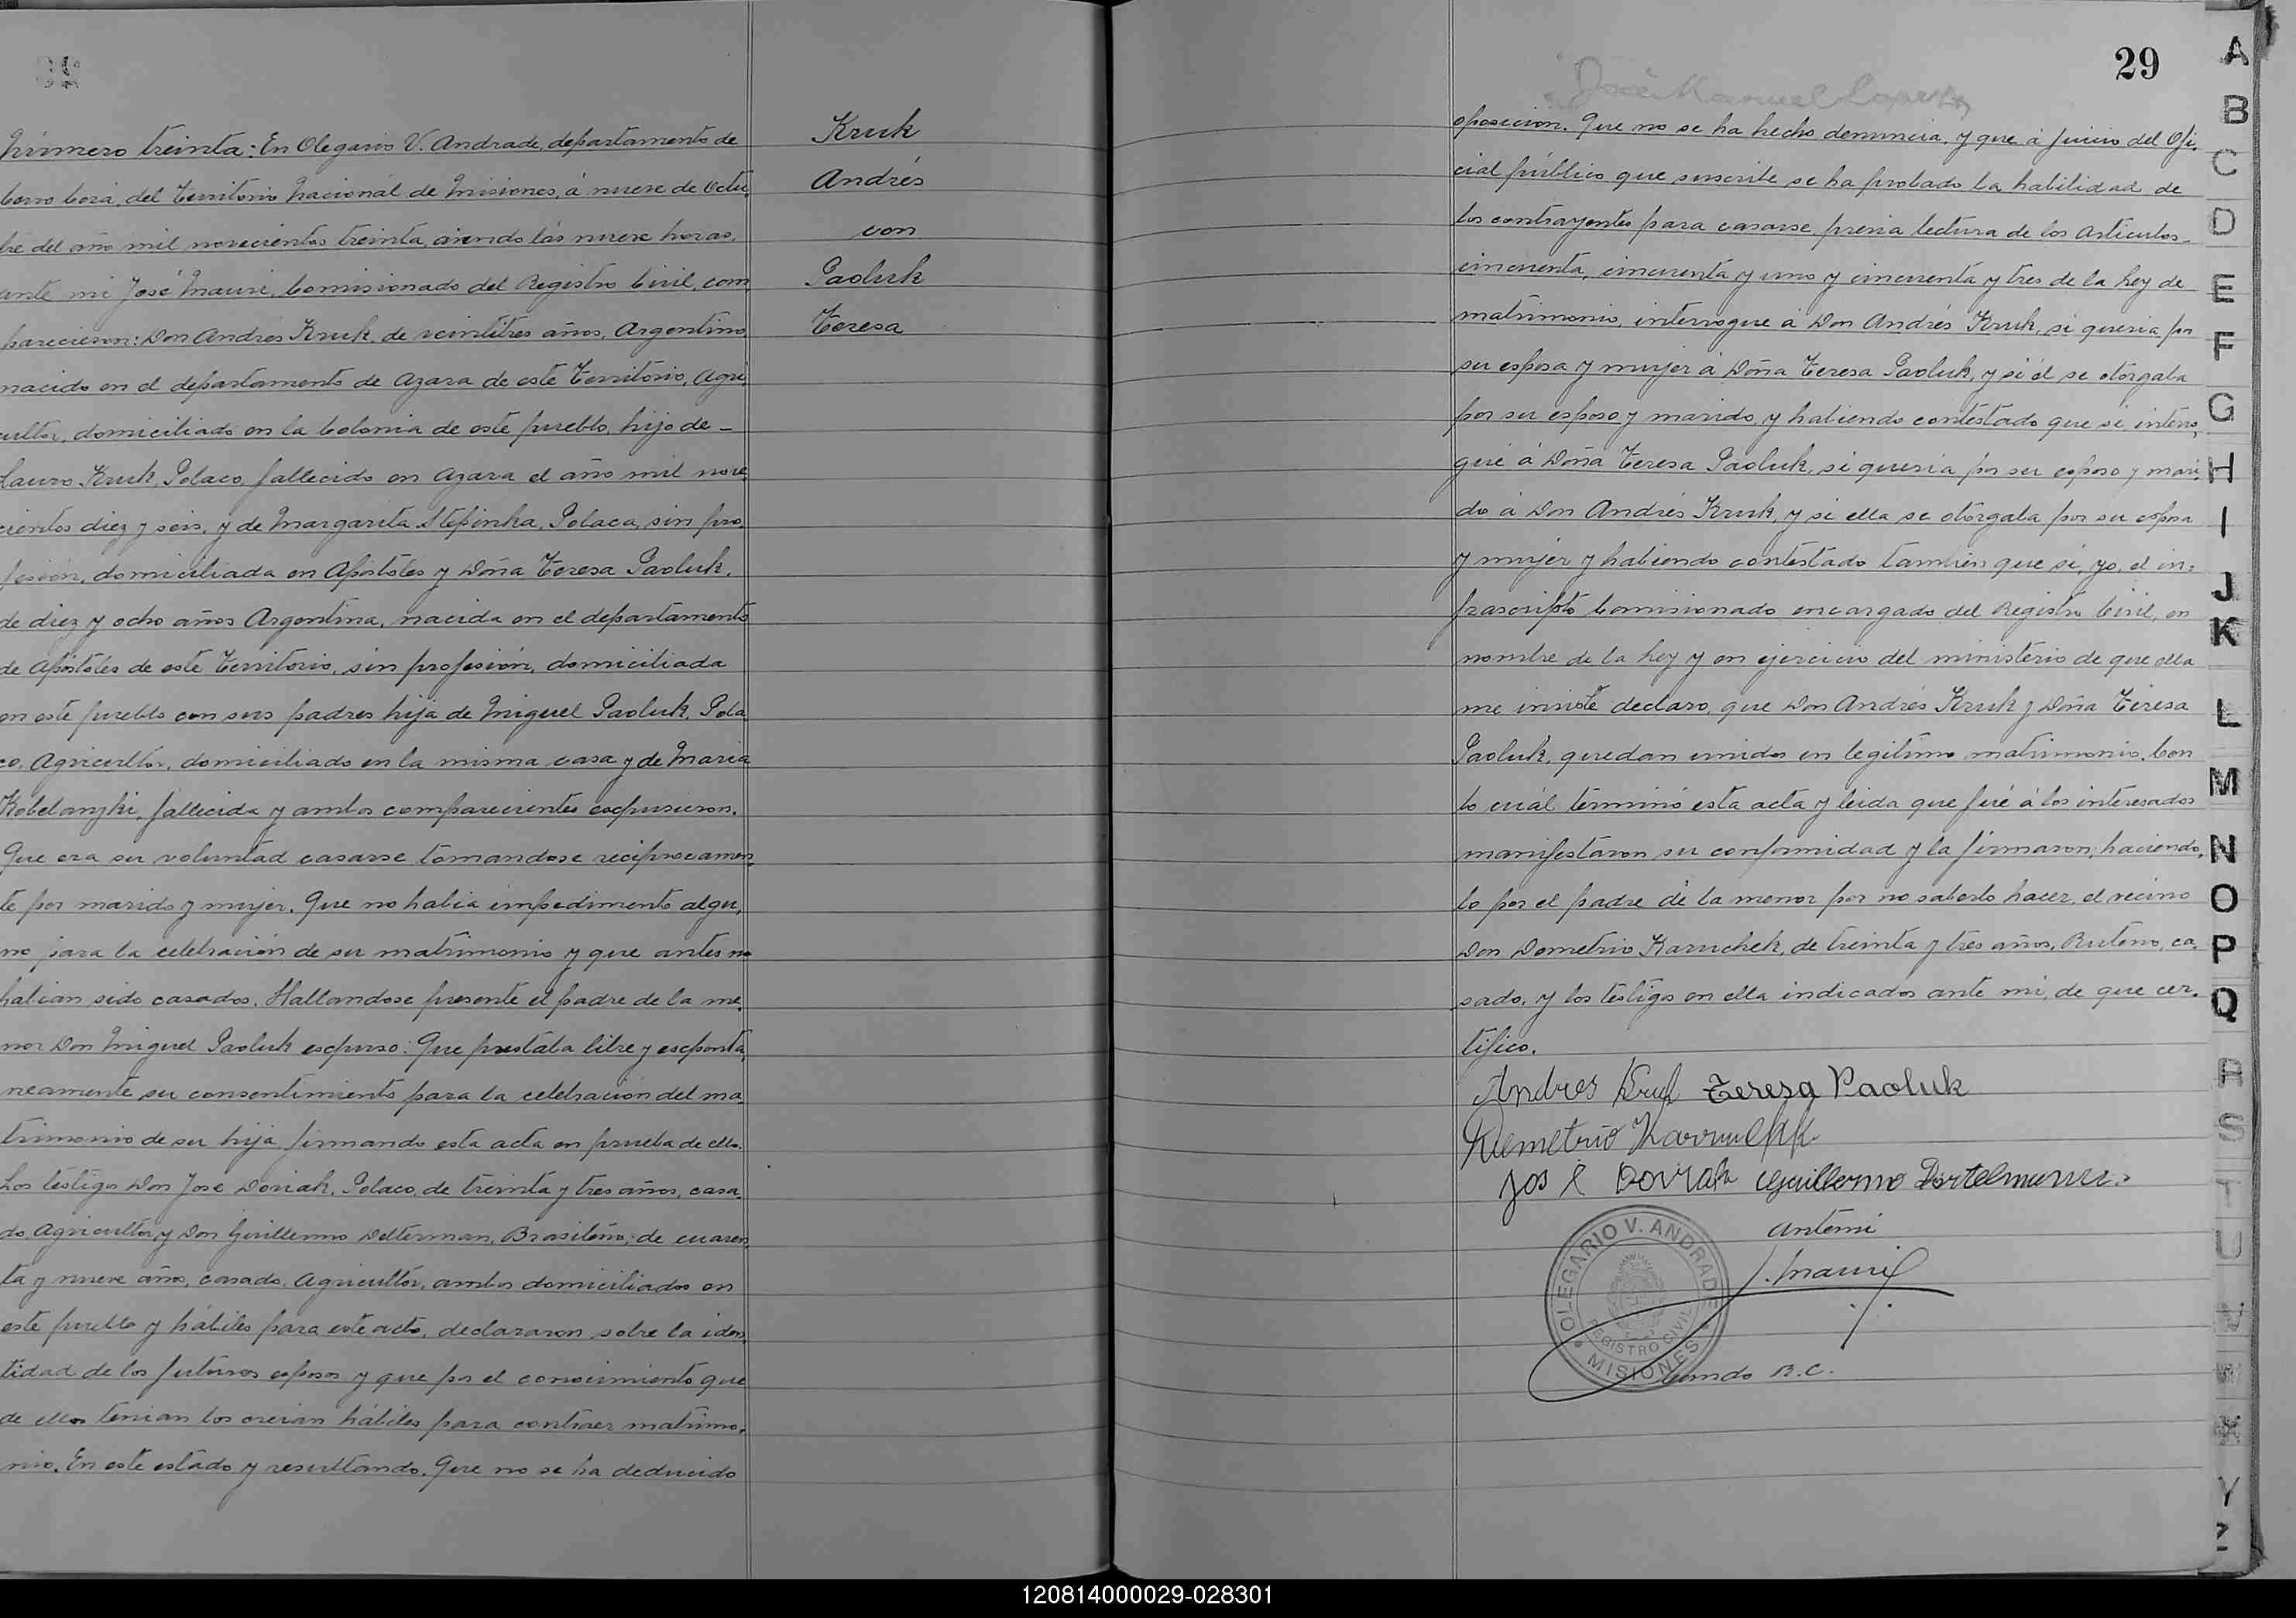 29
Número treinta: En Olegario V. Andrade, departamento de
Cerro Corá, del Territorio Nacional de Misiones, á nueve de Octu,
bre del año mil novecientos treinta, siendo las nueve horas,
ante mi José Mauri, Comisionado del Registro Civil, com,
parecieron: Don Andrés Kruk, de veintitres años, Argentino,
nacido en el departamento de Azara de este Territorio, Agri,
cultor, domiciliado en la Colonia de este pueblo, hijo de -
Lauro Kruk, Polaco, fallecido en Azara el año mil nove,
cientos diez y seis, y de Margarita Stepinka, Polaca, sin pro,
fesión, domiciliada en Apóstoles y Doña Teresa Paoluk,
de diez y ocho años Argentina, nacida en el departamento
de Apóstoles de este Territorio, sin profesión, domiciliada
en este pueblo con sus padres hija de Miguel Paoluk, Pola,
co, Agricultor, domiciliado en la misma casa y de Maria
Kobelanzki, fallecida y ambos comparecientes expusieron.
Que era su voluntad casarse tomandose reciprocamen,
te por marido y mujer. Que no habia impedimento algu,
no para la celebración de su matrimonio y que antes no
habian sido casados. Hallandose presente el padre de la me,
nor Don Miguel Paoluk expuso: Que prestaba libre y esponta,
neamente su consentimiento para la celebración del ma,
trimonio de su hija firmando esta acta en prueba de ello.
Los testigos Don José Doriak, Polaco, de treinta y tres años, casa,
do Agricultor, y Don Guillermo Delterman, Brasileño, de cuaren,
ta y nueve años, casado, Agricultor, ambos domiciliados en
este pueblo y hábiles para este acto, declararon sobre la iden,
tidad de los futuros esposos y que por el conocimiento que
de ellos tenian los creian hábiles para contraer matrimo,
nio. En este estado y resultando. Que no se ha deducido
Kruk
Andrés
con
Paoluk
Teresa
José Manuel
29
oposición. Que no se ha hecho denuncia, y que á juicio del Ofi,
cial público que suscribe se ha probado la habilidad de
los contrayentes para casarse, previa lectura de los articulos -
cincuenta, cincuenta y uno y cincuenta y tres de la Ley de
matrimonio, interrogue á Don Andrés Kruk, si queria por
su esposa y mujer á Doña Teresa Paoluk, y si él se otorgaba
por su esposo y marido, y habiendo contestado que si, interro,
gué á Doña Teresa Paoluk, si queria por su esposo y mari,
do á Don Andrés Kruk, y si ella se otorgaba por su esposa
y mujer y habiendo contestado tambien que si, yo, el in:
frascripto Comisionado encargado del Registro Civil, en
nombre de la Ley y en ejercicio del ministerio de que ella
me inviste declaro, que Don Andrés Kruk y Doña Teresa
Paoluk, quedan unidos en legitimo matrimonio. Con
lo cuál terminó esta acta y leida que fué á los interesados
manifestaron su conformidad y la firmaron, haciendo,
lo por el padre de la menor por no saberlo hacer, el vecino
Don Demetrio Karuchek, de treinta y tres años, Ruteno, ca,
sado, y los testigos en ella indicados ante mi, de que cer,
tifico.
Andres Kruk Teresa Paoluk
Demetrio
José Guillermo
Antemi
J. Mauri
OLEGARIO V. ANDRADE
REGISTRO CIVIL
MISIONES
R. C.
A
B
C
D
E
F
G
H
I
J
K
L
M
N
O
P
Q
R
S
T
U
V
W
X
Y
Z
120814000029-028301